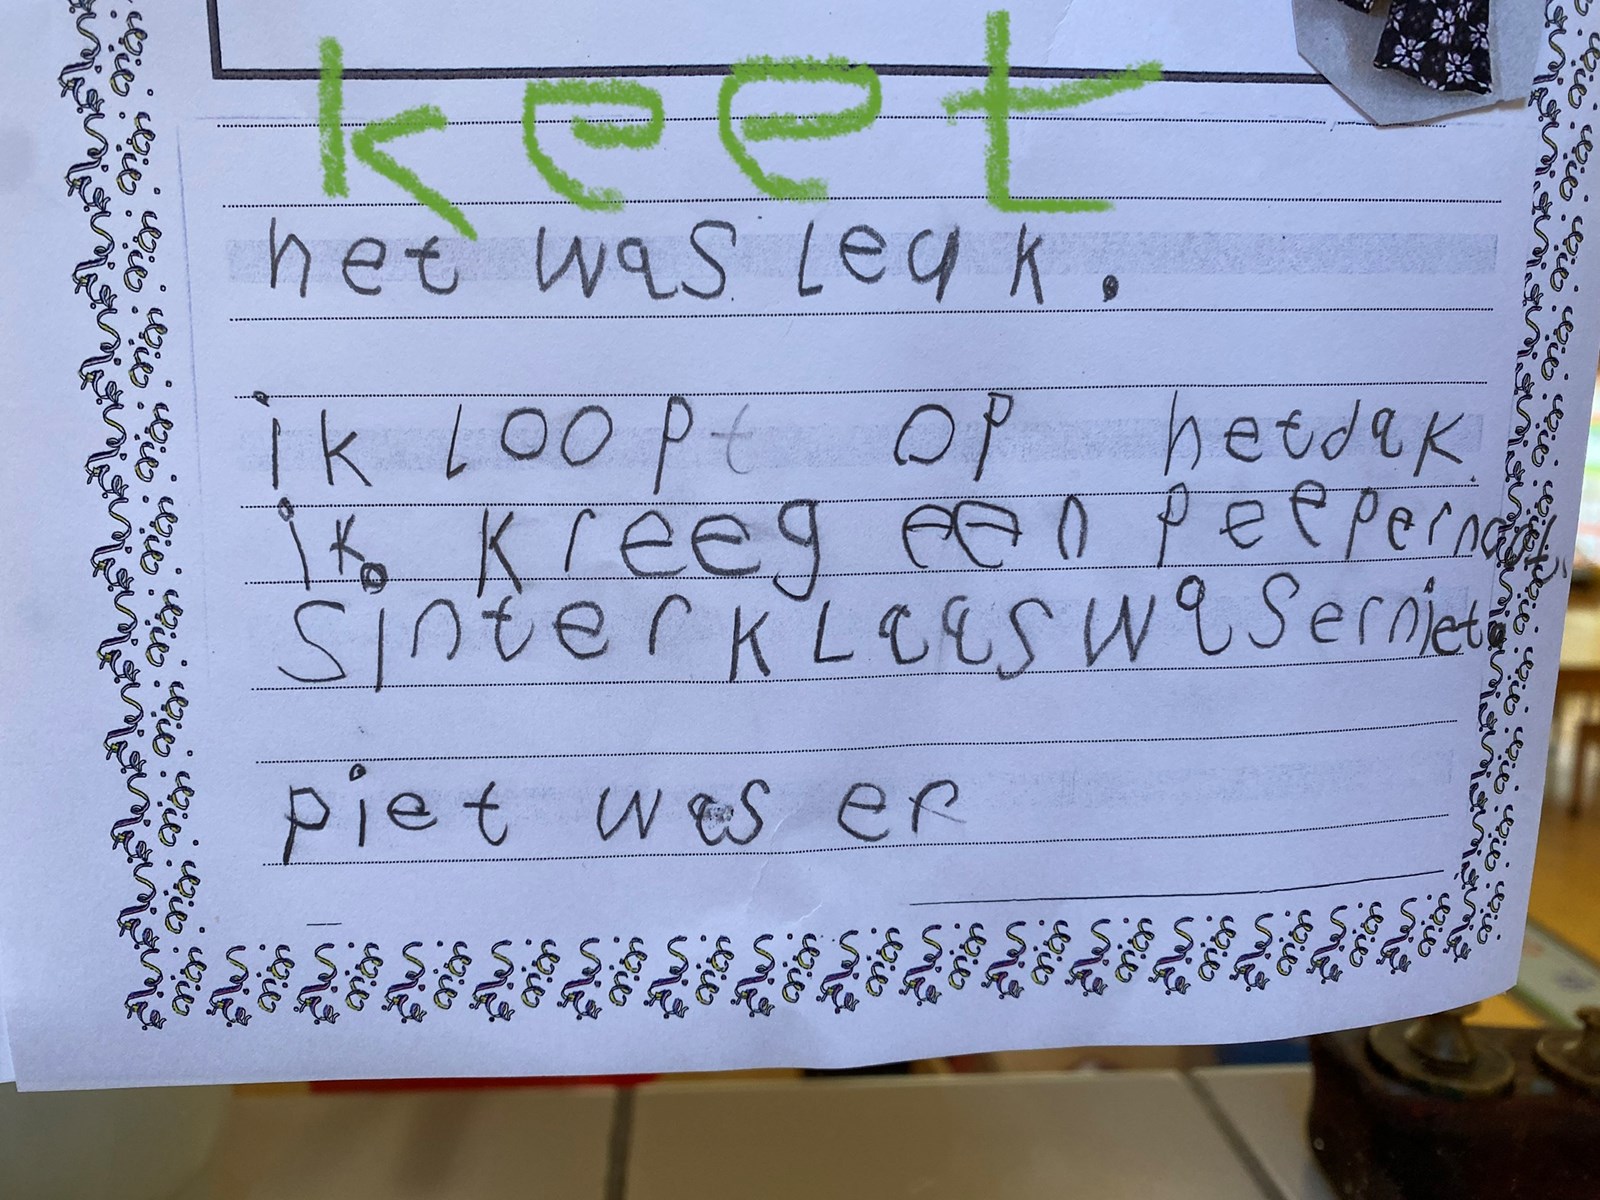 keet
het was leak.
ik loopt op hetdak.
ik kreeg een peepernoot.
Sinterklaas was erniet.
piet was er